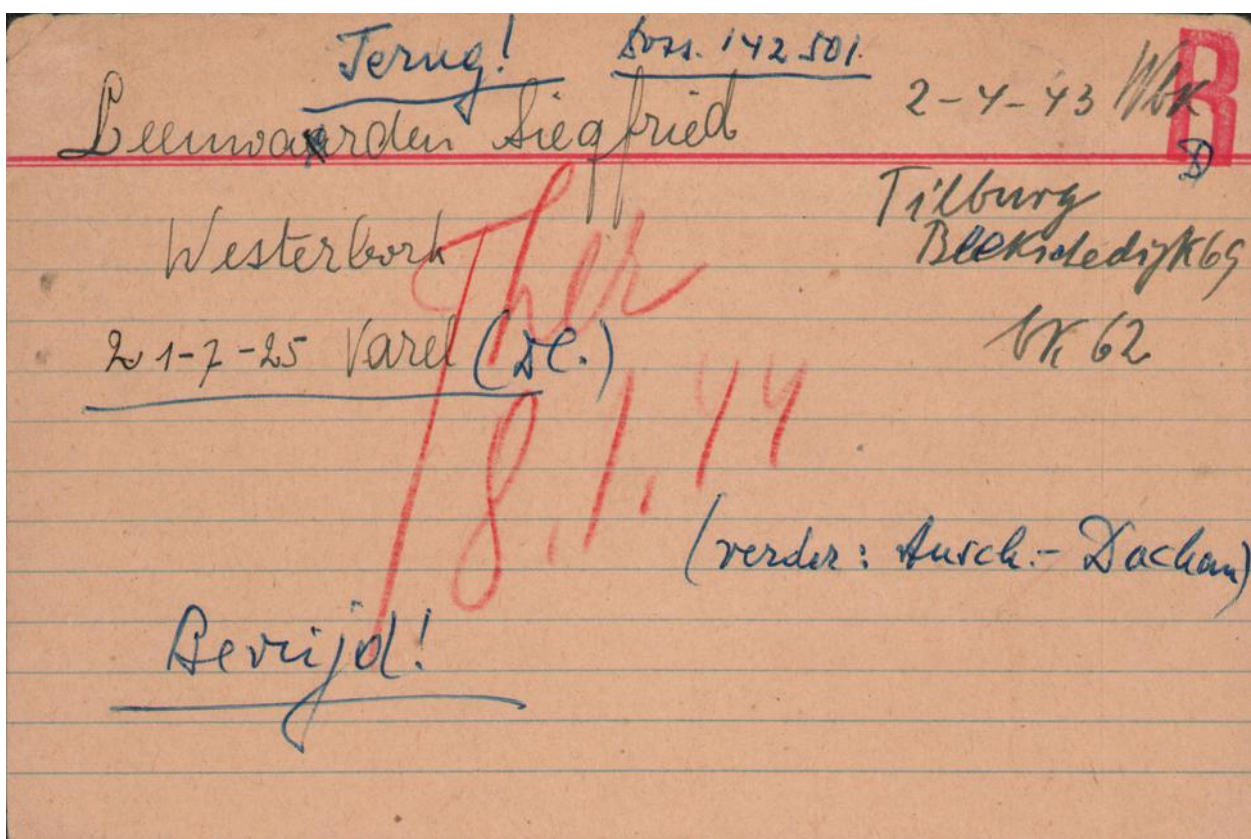 Terug! Doss. 142 501.
Leeuwaarden Siegfried
2-4-43 Wbk
R
Westerbork
Tilburg
21-7-25 Varel (Dl.)
Ther
8.1.44
(verder: Ausch.- Dachau)
Bevrijd!